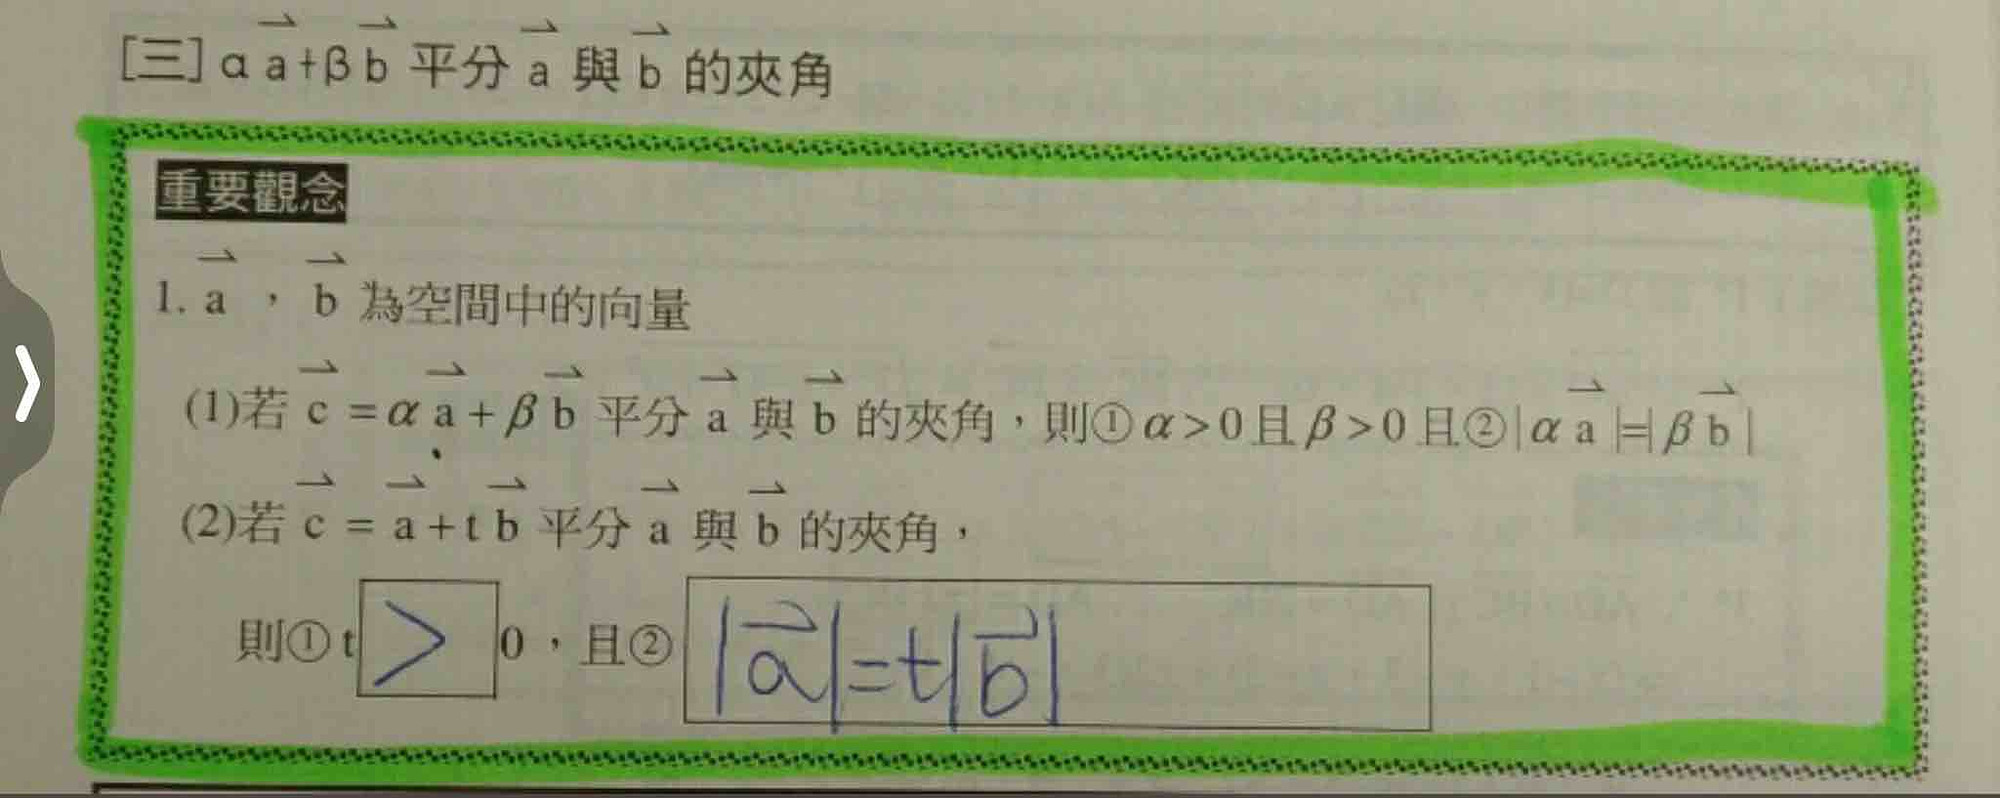 [三] αa⃗+βb⃗ 平分 a⃗ 與 b⃗ 的夾角
重要觀念
1. a⃗ , b⃗ 為空間中的向量
(1)若 c⃗ =αa⃗+βb⃗ 平分 a⃗ 與 b⃗ 的夾角,則①α>0且β>0且②|αa⃗|=|βb⃗|
(2)若 c⃗ = a⃗+tb⃗ 平分 a⃗ 與 b⃗ 的夾角,
則①t > 0,且② |a⃗|=t|b⃗|